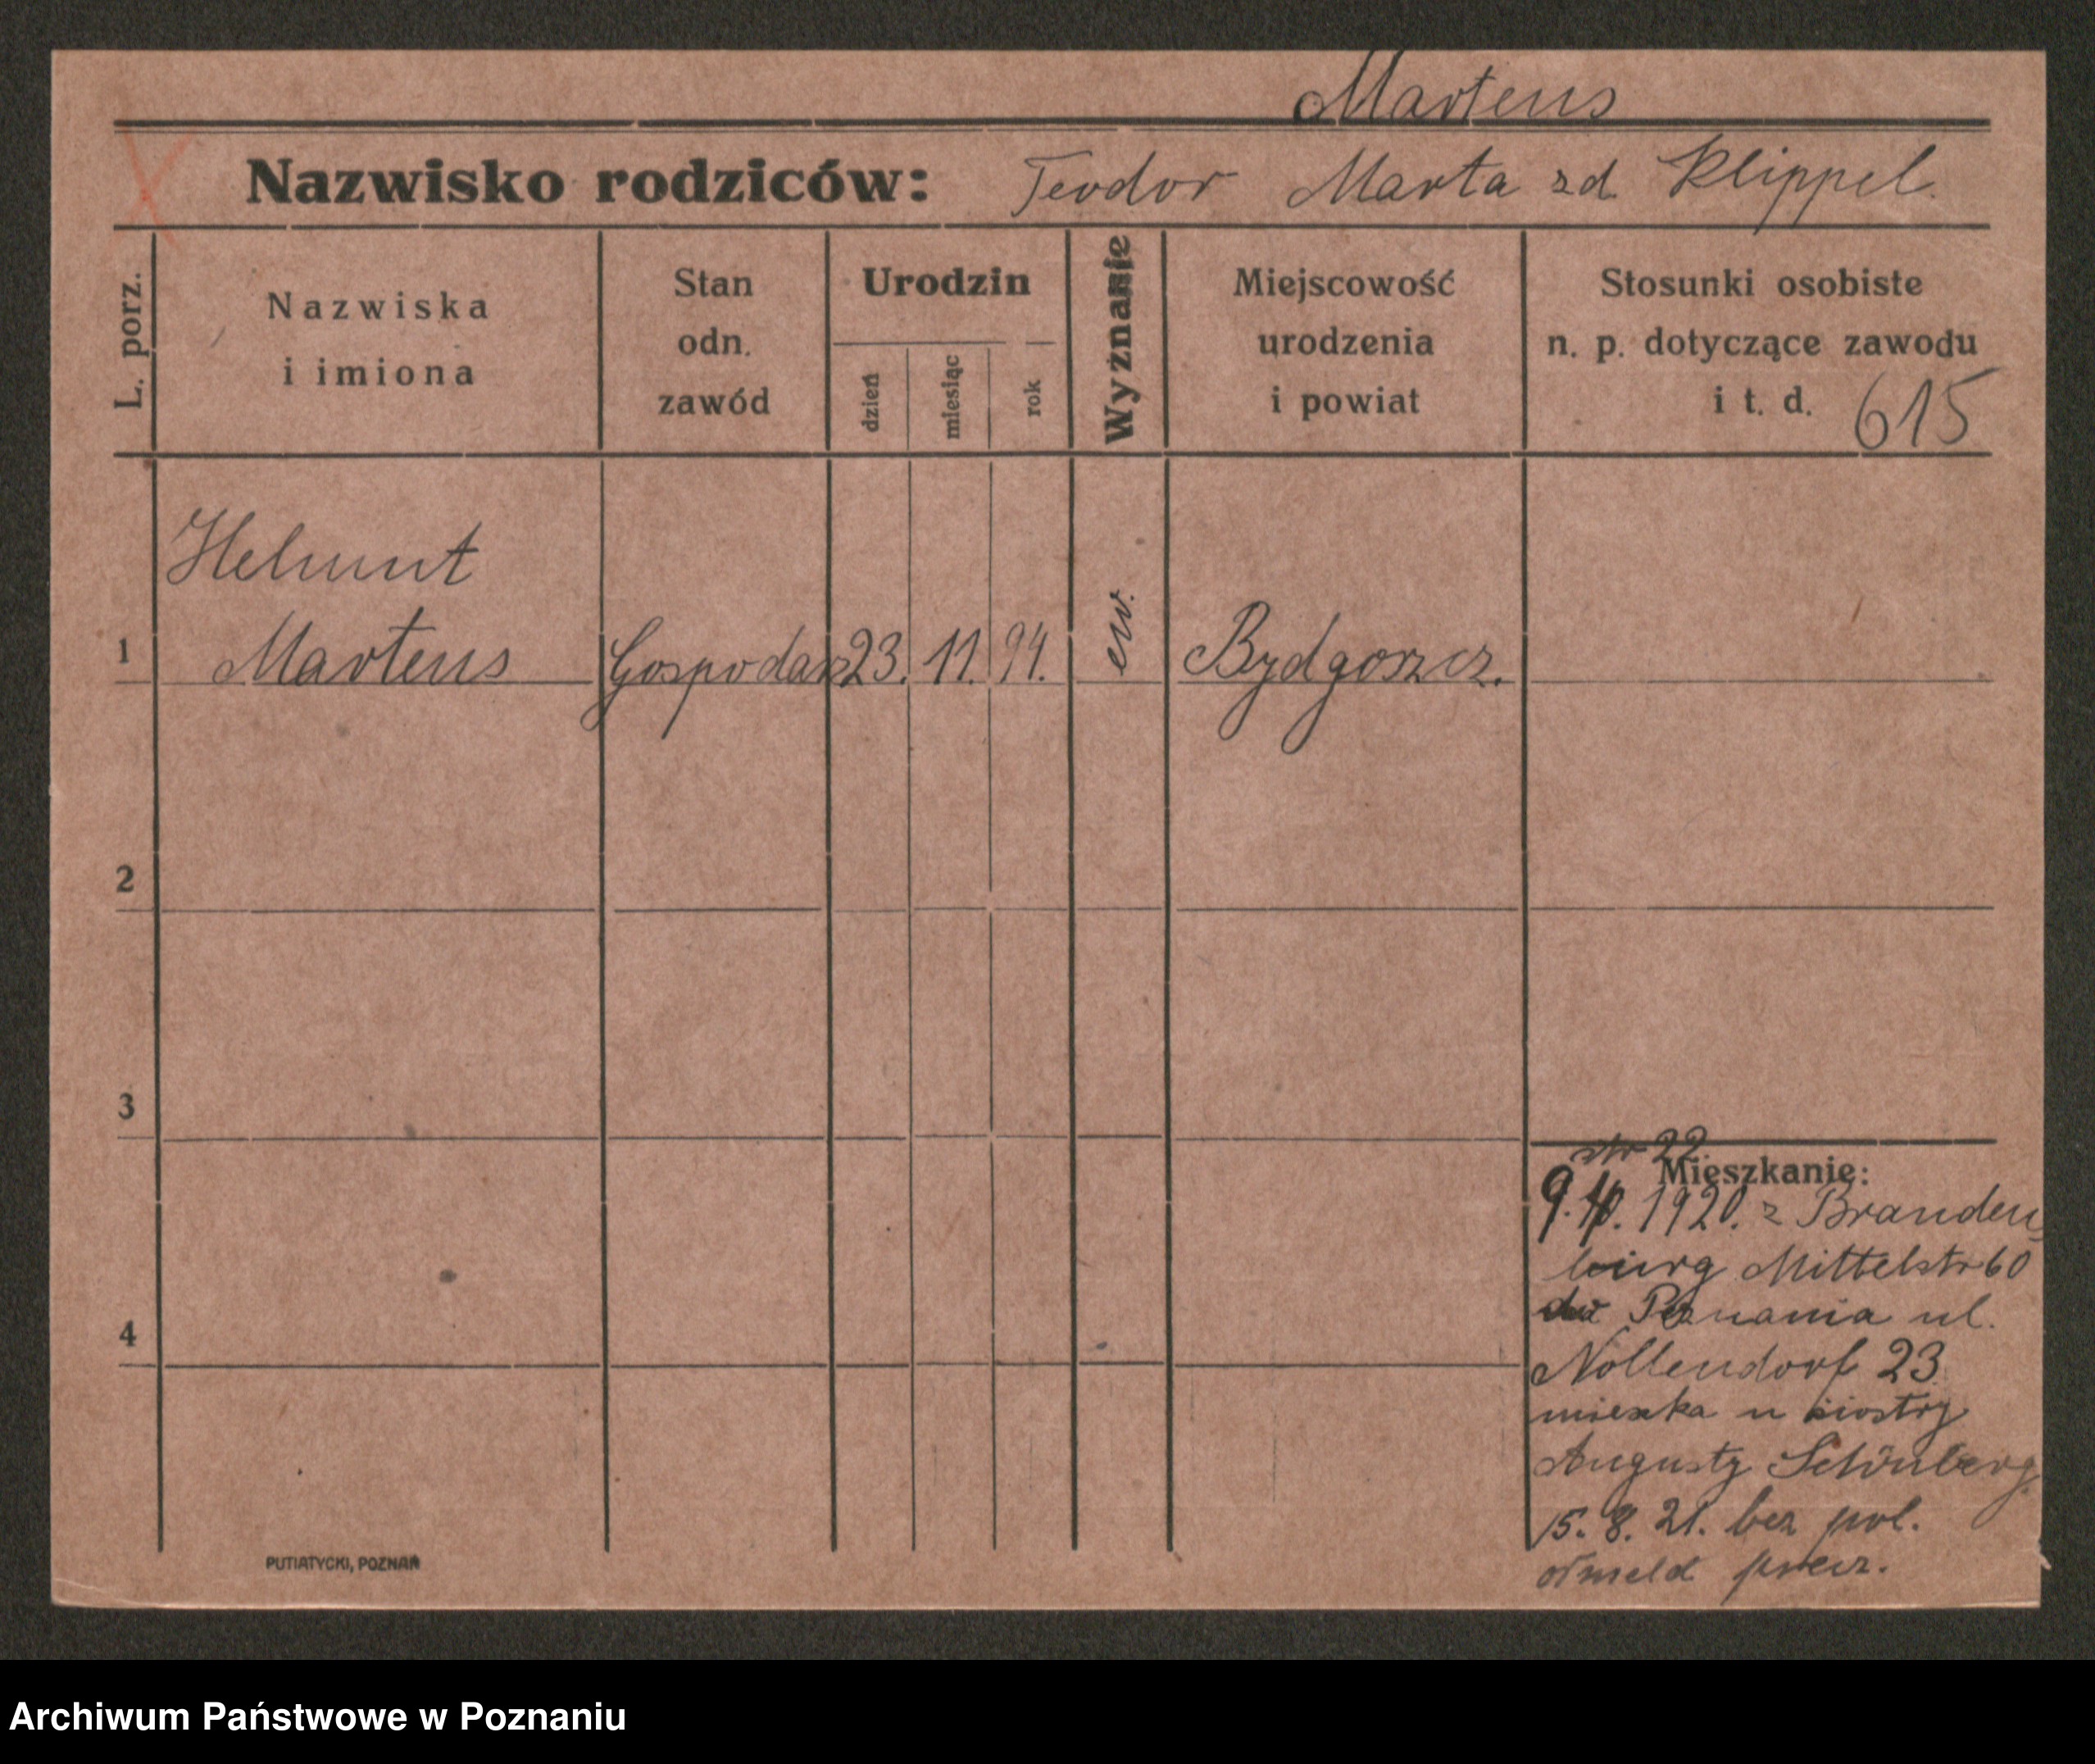 Martens
Nazwisko rodziców: Teodor Marta zd. Klippel.
L. porz.
Nazwiska
i imiona
Stan
odn.
zawód
Urodzin
dzień
miesiąc
rok
Wyznanie
Miejscowość
urodzenia
i powiat
Stosunki osobiste
n. p. dotyczące zawodu
i t. d. 615
Helmut
1 Martens Gospodarz 23. 11. 94. ew. Bydgoszcz.
2
3
4
str 22
Mieszkanie:
9. 10. 1920. z Branden
burg Mittelstr 60
do Poznania ul.
Nollendorf 23
mieszka u siostry
Augusty Schönberg
15. 8. 21. bez pol.
odmeld
PUTIATYCKI, POZNAŃ
Archiwum Państwowe w Poznaniu